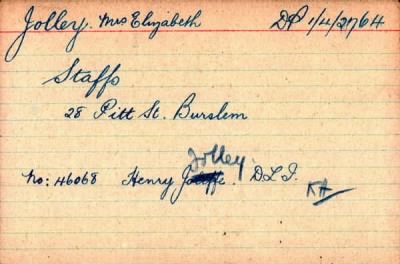 Jolley. Mrs Elizabeth DP 1/4/2764
Staffs
28 Pitt St. Burslem
Jolley
No: 46068 Henry D.L.I. KA